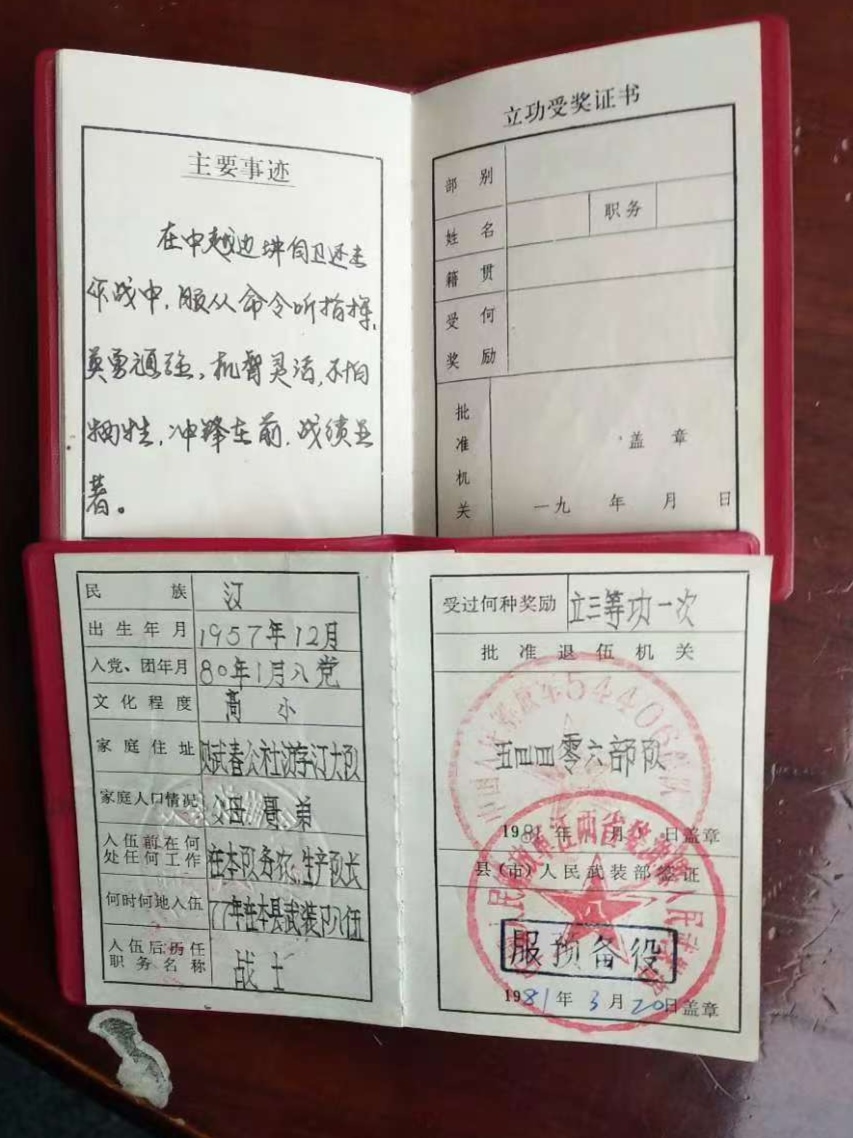 主要事迹
在中越边埤自卫还击
作战中,服从命令听指挥,
英勇顽强,机智灵活,不怕
牺牲,冲锋在前,战绩显
著。
立功受奖证书
部别
姓名 职务
籍贯
受何
奖励
批准机关
盖章
一九 年 月 日
民族 汉
出生年月 1957年12月
入党、团年月 80年1月入党
文化程度 高小
家庭住址 武春公社 大队
家庭人口情况 父母 哥 弟
入伍前在何
处任何工作 在本队务农、生产队长
何时何地入伍 77年在本县武装部入伍
入伍后历任
职务名称 战士
受过何种奖励 立三等功一次
批准退伍机关
中国人民解放军54406部队
五四四零六部队
1981年 月 日盖章
县(市)人民武装部签证
服预备役
1981年3月20日盖章